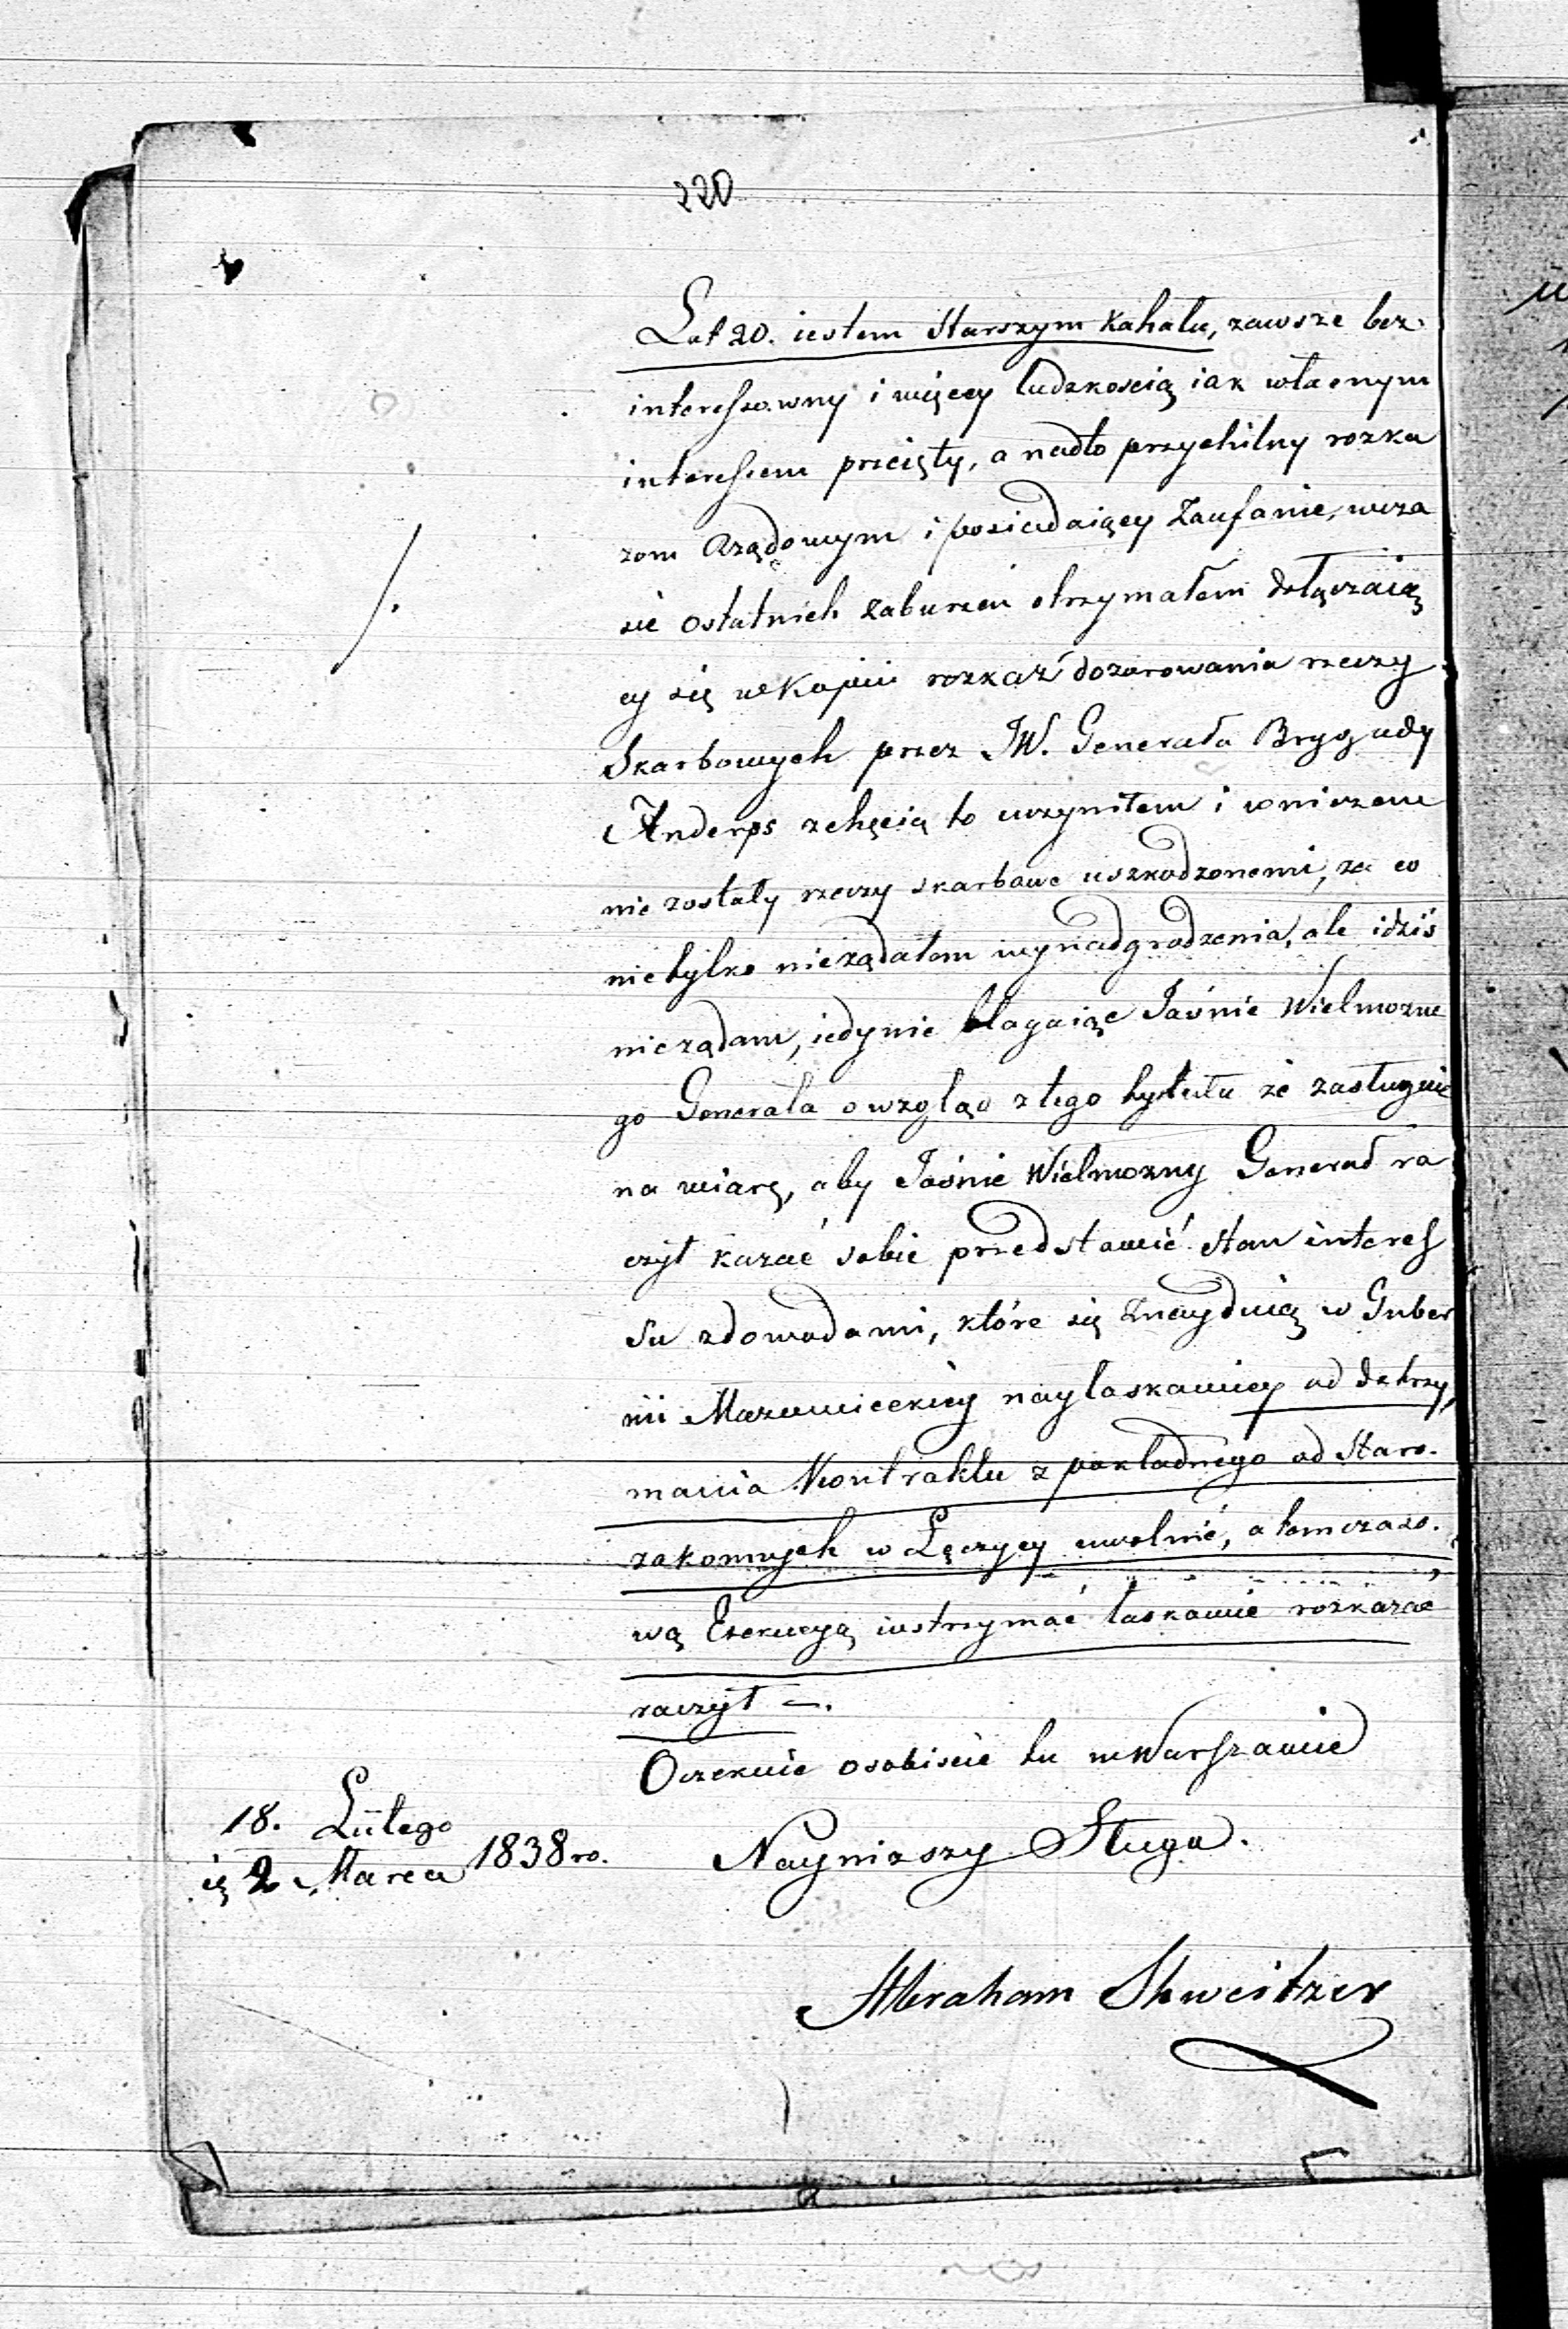 220
Lat 20. iestem Starszym Kahału, zawsze bez-
interessowny i więcy ludzkością iak własnym
interesem prziięty, a nadto przychilny rozka
zom Rządowym i posiadaiący Zaufanie, wcza
sie ostatnich zaburzeń otrzymałem dołączaią
cy się w Kopii rozkaź dozorowania rzeczy
Skarbowych przez JW. Generała Brygady
Anderps zchęcią to uczyniłem i wniczem
nie zostały rzeczy skarbowe uszkodzonemi, za co
nietylko nieządałem wynadgrodzenia, ale idziś
nieządam, iedynie błagaiąc Jaśnie Wielmozne
go Generała owzgląd ztego tytułu że zasługuie
na wiarę, aby Jaśnie Wielmozny Generał ra
czył kazać sobie przedstawić stan interes
su zdowodami, które się znayduią w Guber
nii Mazowieckiey naylaskawiey od dotrzy,
mania Kontraktu z pokładnego od Staro-
zakonnych w Łęczycy uwolnić, a tymczaso-
wą Exekucyą wstrzymać łaskawie rozkazać
raczył —.
Oczekuie osobiscie tu w Warszawie
18. Lutego
ią 2 Marca 1838 ro.
Naynizszy Sługa.
Abraham Shweitzer